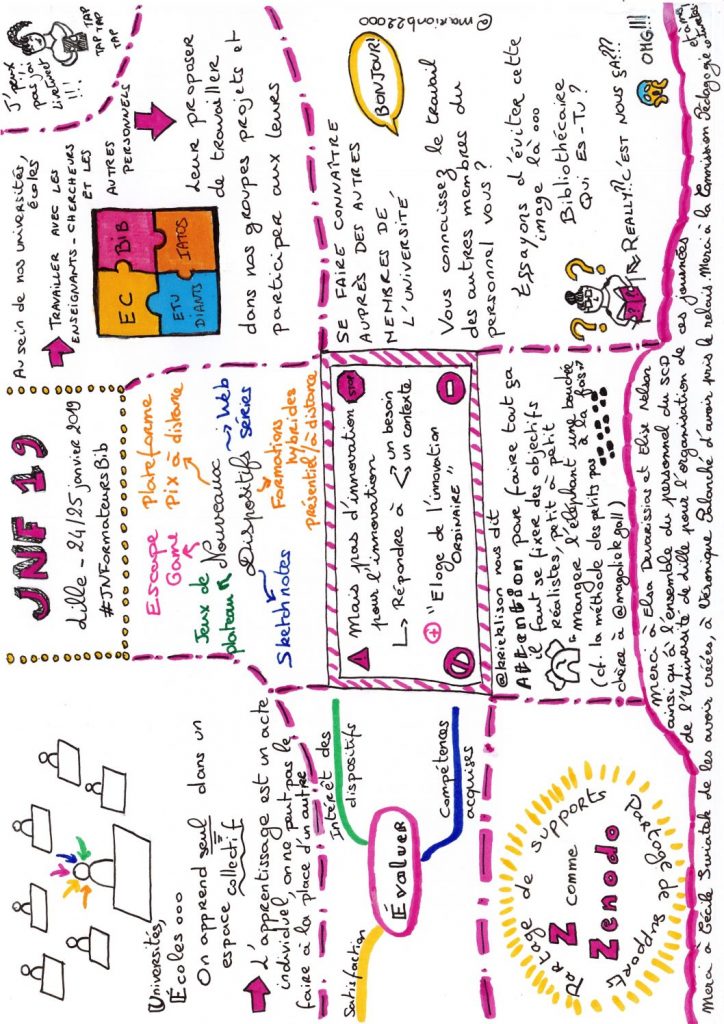 JNF 19
Lille - 24/25 janvier 2019
#JNFormateursBib
Universités,
Écoles...
On apprend seul dans un
espace collectif
L'apprentissage est un acte
individuel, on ne peut pas le
faire à la place d'un autre
Escape
Game
Plateforme
Pix à distance
Jeux de
plateau
Nouveaux
Dispositifs
Web
séries
Sketchnotes
Formations
hybrides
présentiel/à distance
Au sein de nos universités,
écoles
TRAVAILLER AVEC LES
ENSEIGNANTS-CHERCHEURS
ET LES
AUTRES
PERSONNELS
J'peux
pas j'ai
livetweet
!!!
TAP
TAP TAP
TAP
EC
BIB
ETU
DIANTS
IATOS
Leur proposer
de travailler
dans nos groupes projets et
participer aux leurs
Évaluer
Satisfaction
Intérêt des
dispositifs
Compétences
acquises
Mais pas d'innovation
pour l'innovation
STOP
Répondre à
un besoin
un contexte
"Eloge de l'innovation
ORDINAIRE"
SE FAIRE CONNAÎTRE
AUPRÈS DES AUTRES
MEMBRES DE
L'UNIVERSITÉ
BONJOUR!
@marionb22000
Vous connaissez le travail
des autres membres du
personnel vous ?
Essayons d'éviter cette
image là...
Bibliothécaire
Qui es-tu ?
REALLY?! C'EST NOUS ÇA???
OMG!!!
Partage de supports
Z comme
Zenodo
Partage de supports
nous dit
Attention pour faire tout ça
il faut se fixer des objectifs
réalistes, petit à petit
manger l'éléphant une bouchée
à la fois
(cf. la méthode des petits pas
chère à @magalielegall)
Merci à Elsa Devarissias et Elise Nelson
ainsi qu'à l'ensemble du personnel du SCD
de l'Université de Lille pour l'organisation de ces journées
Merci à Cécile Swiatek de les avoir créées, à Véronique Palanché d'avoir pris le relais. Merci à la Commission Pédagogie